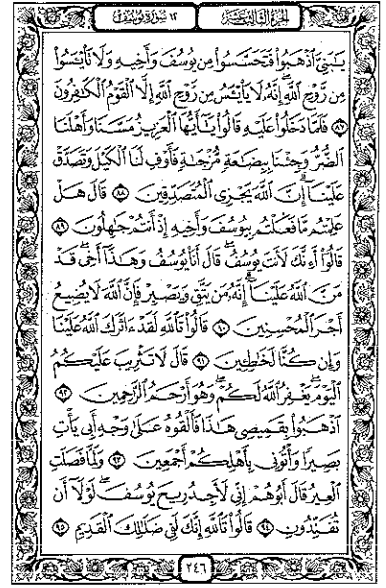 الجزء الثالث عشر
١٢ سورة يوسف
يَـٰبَنِىَّ ٱذْهَبُوا۟ فَتَحَسَّسُوا۟ مِن يُوسُفَ وَأَخِيهِ وَلَا تَا۟يْـَٔسُوا۟
مِن رَّوْحِ ٱللَّهِ ۖ إِنَّهُۥ لَا يَا۟يْـَٔسُ مِن رَّوْحِ ٱللَّهِ إِلَّا ٱلْقَوْمُ ٱلْكَـٰفِرُونَ
٨٧ فَلَمَّا دَخَلُوا۟ عَلَيْهِ قَالُوا۟ يَـٰٓأَيُّهَا ٱلْعَزِيزُ مَسَّنَا وَأَهْلَنَا
ٱلضُّرُّ وَجِئْنَا بِبِضَـٰعَةٍ مُّزْجَىٰةٍ فَأَوْفِ لَنَا ٱلْكَيْلَ وَتَصَدَّقْ
عَلَيْنَآ ۖ إِنَّ ٱللَّهَ يَجْزِى ٱلْمُتَصَدِّقِينَ ٨٨ قَالَ هَلْ
عَلِمْتُم مَّا فَعَلْتُم بِيُوسُفَ وَأَخِيهِ إِذْ أَنتُمْ جَـٰهِلُونَ ٨٩
قَالُوٓا۟ أَءِنَّكَ لَأَنتَ يُوسُفُ ۖ قَالَ أَنَا۠ يُوسُفُ وَهَـٰذَآ أَخِى ۖ قَدْ
مَنَّ ٱللَّهُ عَلَيْنَآ ۖ إِنَّهُۥ مَن يَتَّقِ وَيَصْبِرْ فَإِنَّ ٱللَّهَ لَا يُضِيعُ
أَجْرَ ٱلْمُحْسِنِينَ ٩٠ قَالُوا۟ تَٱللَّهِ لَقَدْ ءَاثَرَكَ ٱللَّهُ عَلَيْنَا
وَإِن كُنَّا لَخَـٰطِـِٔينَ ٩١ قَالَ لَا تَثْرِيبَ عَلَيْكُمُ
ٱلْيَوْمَ ۖ يَغْفِرُ ٱللَّهُ لَكُمْ ۖ وَهُوَ أَرْحَمُ ٱلرَّٰحِمِينَ ٩٢
ٱذْهَبُوا۟ بِقَمِيصِى هَـٰذَا فَأَلْقُوهُ عَلَىٰ وَجْهِ أَبِى يَأْتِ
بَصِيرًا وَأْتُونِى بِأَهْلِكُمْ أَجْمَعِينَ ٩٣ وَلَمَّا فَصَلَتِ
ٱلْعِيرُ قَالَ أَبُوهُمْ إِنِّى لَأَجِدُ رِيحَ يُوسُفَ ۖ لَوْلَآ أَن
تُفَنِّدُونِ ٩٤ قَالُوا۟ تَٱللَّهِ إِنَّكَ لَفِى ضَلَـٰلِكَ ٱلْقَدِيمِ ٩٥
٢٤٦